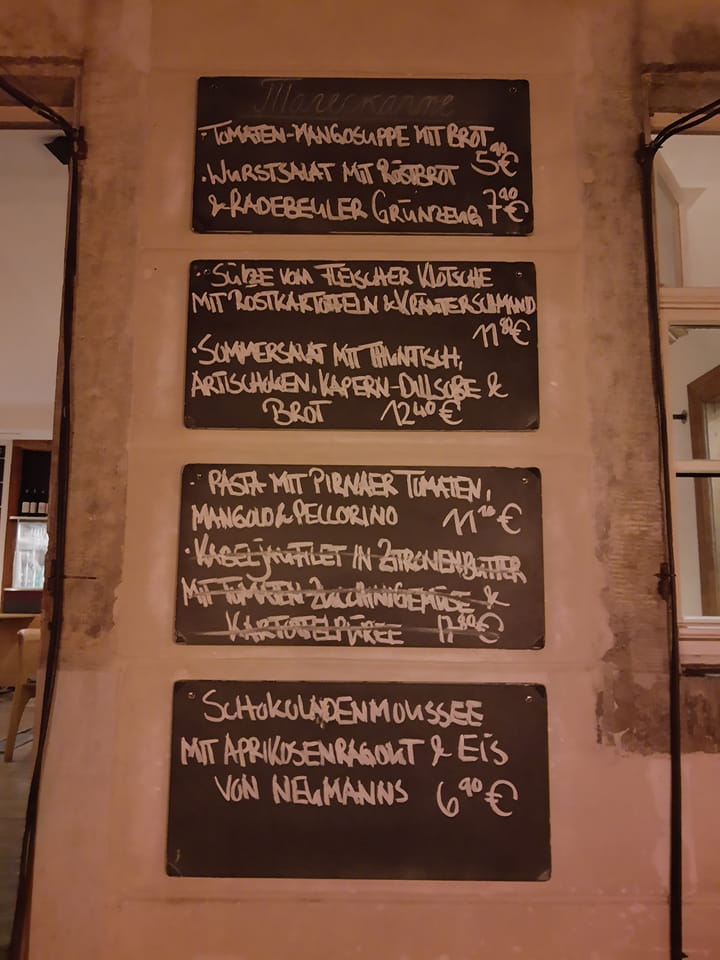 · TOMATEN-MANGOSUPPE MIT BROT
5,90€
· WURSTSALAT MIT RÖSTBROT
& RADEBEULER GRÜNZEUG 7,90€
· SÜLZE VOM FLEISCHER KLOTSCHE
MIT ROSTKARTOFFELN & KRÄUTERSCHMAND
11,80€
· SOMMERSALAT MIT THUNFISCH,
ARTISCHOKEN, KAPERN-DILLSOßE &
BROT 12,40€
· PASTA MIT PIRNAER TOMATEN,
MANGOLD & PELLORINO 11,20€
· KABELJAUFILET IN ZITRONENBUTTER
MIT TOMATEN-ZUCCHINIGEMÜSE &
KARTOFFELPÜREE 17,80€
SCHOKOLADENMOUSSEE
MIT APRIKOSENRAGOUT & EIS
VON NEUMANNS 6,90€